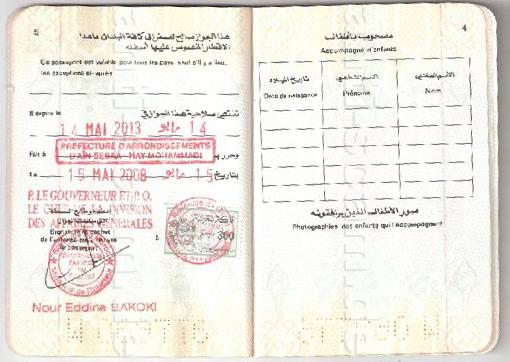 5
هذا الجواز صالح للسفر إلى كافة البلدان ما عدا
الأقطار المنصوص عليها أسفله
Ce passeport est valable pour tous les pays sauf s'il y a lieu,
les exceptions ci-après
تنتهي صلاحية هذا الجواز في
Il expire le
14 MAI 2013 14 مايو
PREFECTURE D'ARRONDISSEMENTS
D'AIN SEBAA - HAY MOHAMMADI
Fait à
وحرر بـ
Le
15 MAI 2008 15 مايو
بتاريخ
P. LE GOUVERNEUR ET P. O.
LE CHEF DE LA DIVISION
DES AFFAIRES GENERALES
Signature et cachet
de l'autorité qui délivre
le passeport
300
Nour Eddine BAKOKI
4
مصحوب بأطفال
Accompagné d'enfants
الاسم العائلي
الاسم الشخصي
تاريخ الميلاد
Nom
Prénoms
Date de naissance
صور الأطفال الذين يرافقونه
Photographies des enfants qui l'accompagnent